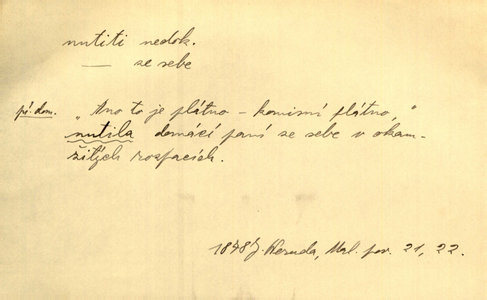 nutiti nedok.
— se sebe
př. dom. „Ano to je plátno – komisní plátno,"
nutila domácí paní se sebe v okam-
žitých rozpacích.
1878 J. Neruda, Mal. pov. 21, 22.